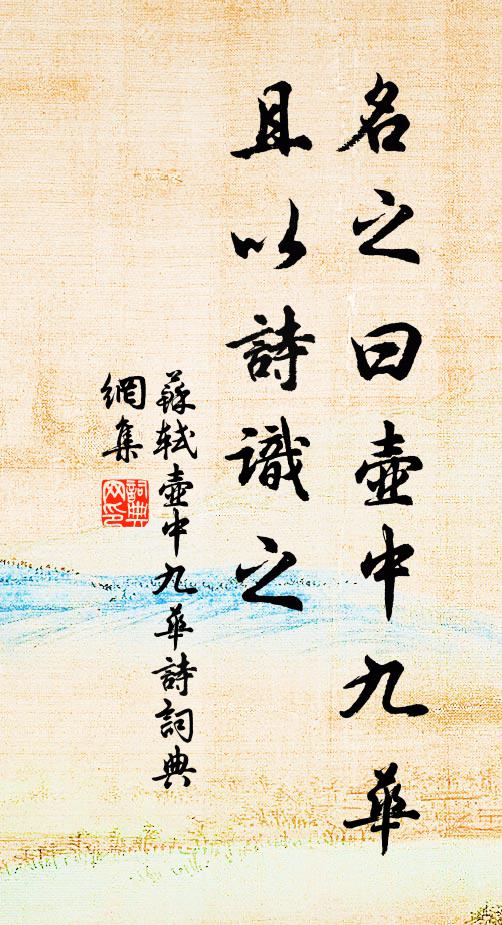 名之曰壺中九華
且以詩識之
蘇軾壺中九華詩詞典
網集
詞典
网印